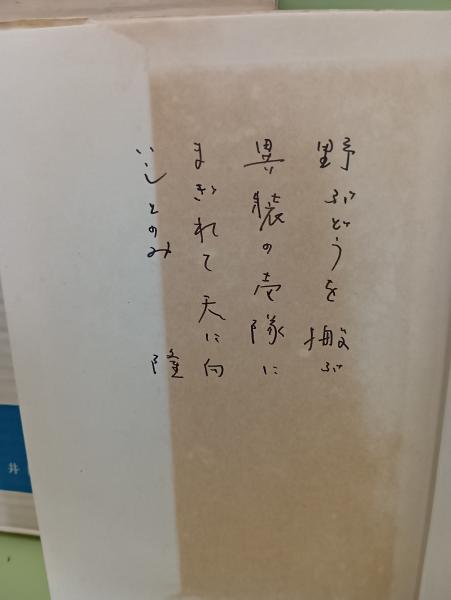 野ぶどうを搬ぶ
異装の壱隊に
まぎれて天に向
いしとのみ
隆
井